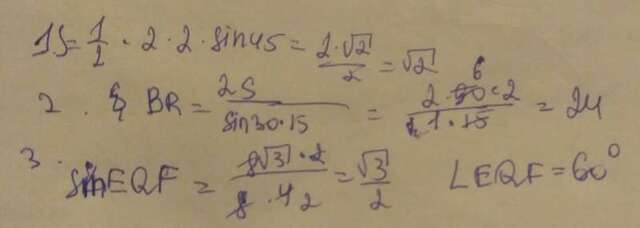 1 S = 1/2 · 2 · 2 · sin 45 = 2·√2/2 = √2
2. BR = 2S/sin30·15 = 2·90·2/1·15 = 24
3. sin EQF = 8√3·2/8·4 2 = √3/2 LEQF = 60°